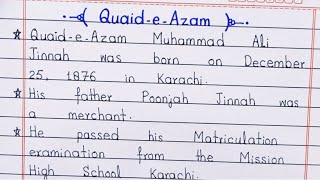 Quaid-e-Azam
Quaid-e-Azam Muhammad Ali
Jinnah was born on December
25, 1876 in Karachi.
His father Poonjah Jinnah was
a merchant.
He passed his Matriculation
examination from the Mission
High School Karachi.